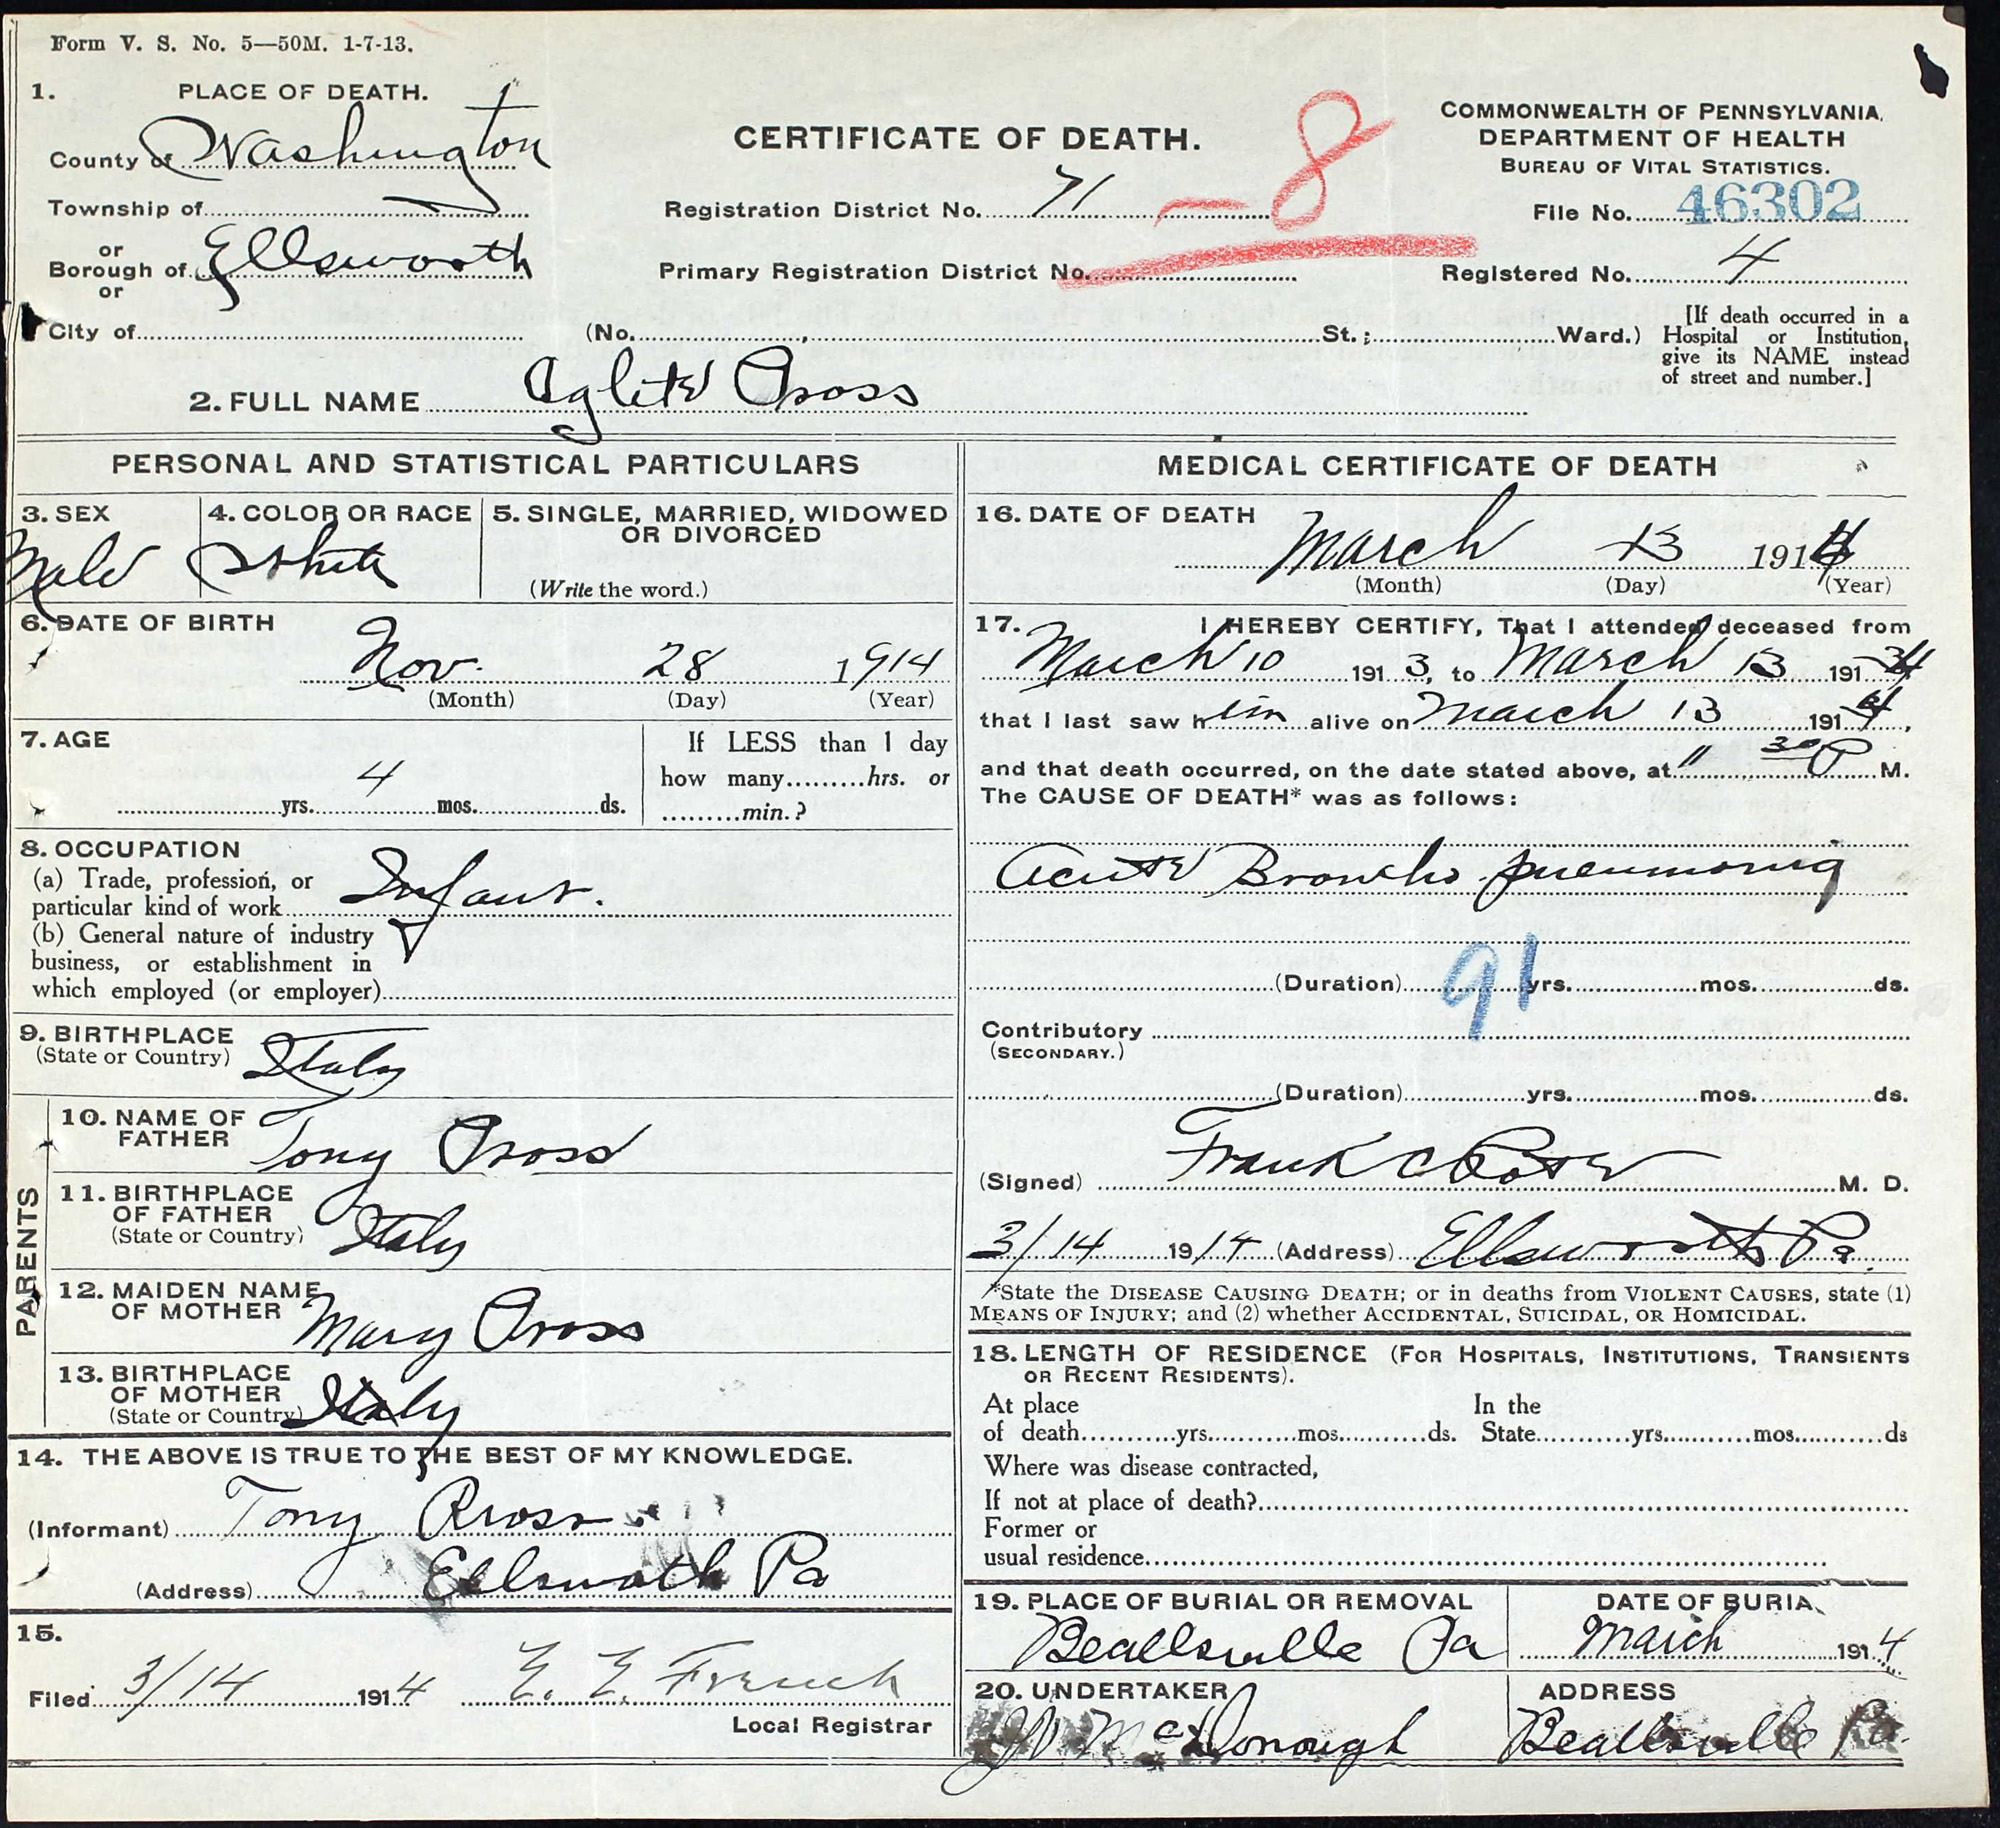 Form V. S. No. 5—50M. 1-7-13.
1. PLACE OF DEATH.
County of Washington
Township of
or
Borough of Ellsworth
or
City of (No. , St.; Ward.)
CERTIFICATE OF DEATH.
Registration District No. 71 - 8
Primary Registration District No.
COMMONWEALTH OF PENNSYLVANIA,
DEPARTMENT OF HEALTH
BUREAU OF VITAL STATISTICS.
File No. 46302
Registered No. 4
[If death occurred in a
Hospital or Institution,
give its NAME instead
of street and number.]
2. FULL NAME
PERSONAL AND STATISTICAL PARTICULARS
3. SEX
Male
4. COLOR OR RACE
White
5. SINGLE, MARRIED, WIDOWED
OR DIVORCED
(Write the word.)
6. DATE OF BIRTH
Nov. 28 1914
(Month) (Day) (Year)
7. AGE
4
yrs. mos. ds.
If LESS than 1 day
how many hrs. or
min.?
8. OCCUPATION
(a) Trade, profession, or
particular kind of work Infant.
(b) General nature of industry
business, or establishment in
which employed (or employer)
9. BIRTHPLACE
(State or Country) Italy
PARENTS
10. NAME OF
FATHER Tony
11. BIRTHPLACE
OF FATHER
(State or Country) Italy
12. MAIDEN NAME
OF MOTHER Mary
13. BIRTHPLACE
OF MOTHER
(State or Country) Italy
14. THE ABOVE IS TRUE TO THE BEST OF MY KNOWLEDGE.
(Informant) Tony
(Address) Ellsworth Pa
15.
Filed 3/14 1914 E. E. French
Local Registrar
MEDICAL CERTIFICATE OF DEATH
16. DATE OF DEATH
March 13 1914
(Month) (Day) (Year)
17. I HEREBY CERTIFY, That I attended deceased from
March 10 1913, to March 13 1914
that I last saw him alive on March 13 1914,
and that death occurred, on the date stated above, at 11 30 P M.
The CAUSE OF DEATH* was as follows:
Acute Broncho-pneumonia
91
(Duration) yrs. mos. ds.
Contributory
(SECONDARY.)
(Duration) yrs. mos. ds.
(Signed) Frank C M. D.
3/14 1914 (Address) Ellsworth Pa.
*State the DISEASE CAUSING DEATH; or in deaths from VIOLENT CAUSES, state (1)
MEANS OF INJURY; and (2) whether ACCIDENTAL, SUICIDAL, OR HOMICIDAL.
18. LENGTH OF RESIDENCE (FOR HOSPITALS, INSTITUTIONS, TRANSIENTS
OR RECENT RESIDENTS).
At place
of death yrs. mos. ds.
In the
State yrs. mos. ds
Where was disease contracted,
If not at place of death?
Former or
usual residence
19. PLACE OF BURIAL OR REMOVAL
Beallsville Pa
DATE OF BURIAL
March 1914
20. UNDERTAKER
McDonough
ADDRESS
Beallsville Pa.